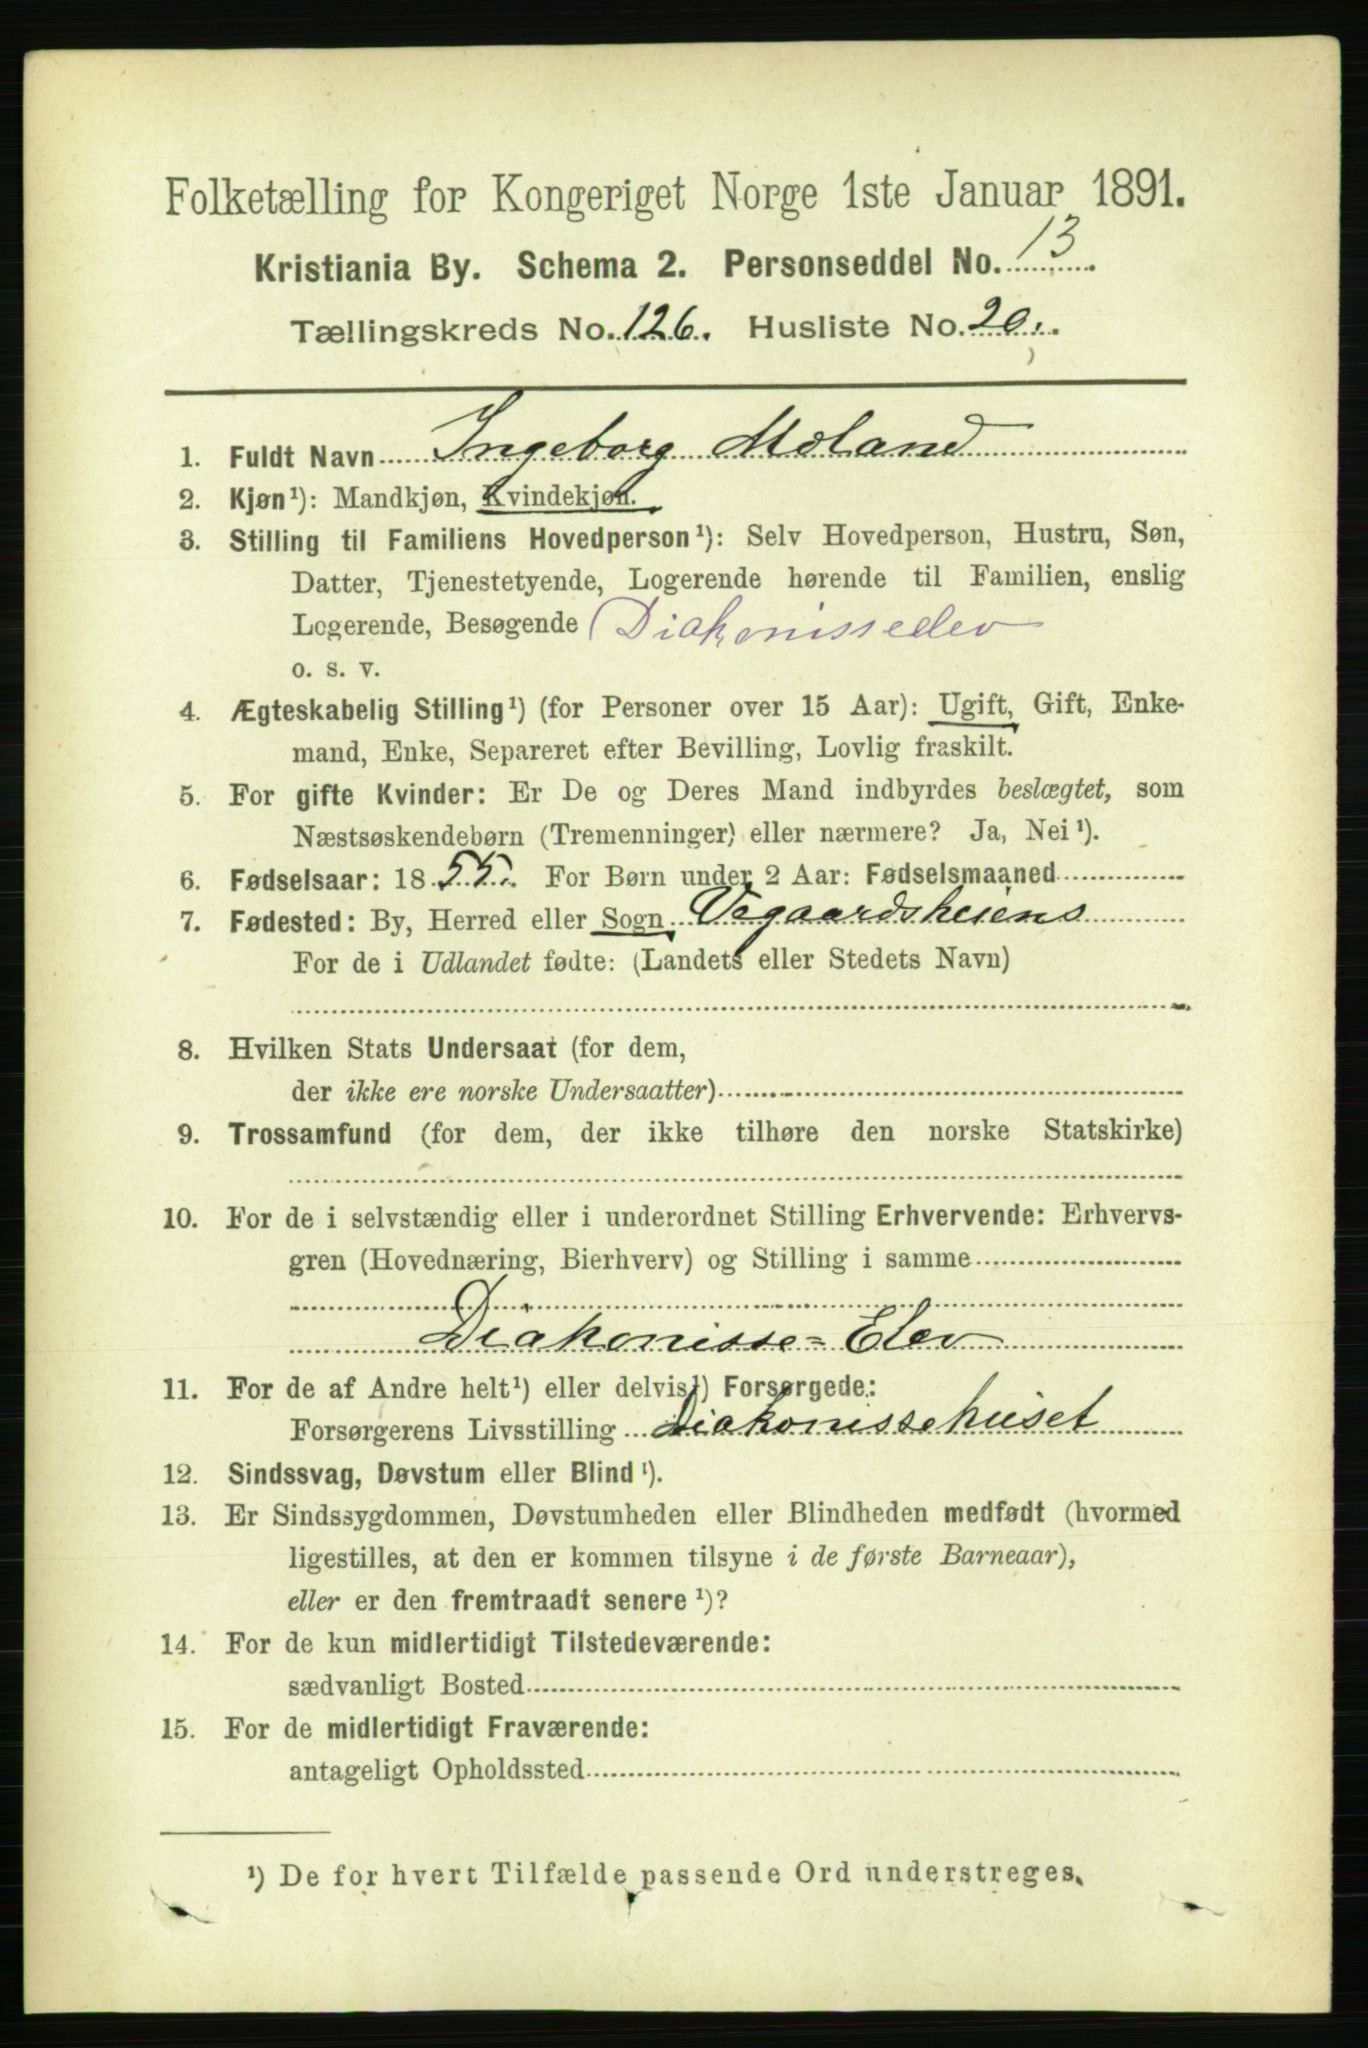 Folketælling for Kongeriget Norge 1ste Januar 1891.
Kristiania By. Schema 2. Personseddel No. 13
Tællingskreds No. 126. Husliste No. 20.
1. Fuldt Navn Ingeborg Moland
2. Kjøn¹): Mandkjøn, Kvindekjøn.
3. Stilling til Familiens Hovedperson¹): Selv Hovedperson, Hustru, Søn,
Datter, Tjenestetyende, Logerende hørende til Familien, enslig
Logerende, Besøgende Diakonisseelev
o. s. v.
4. Ægteskabelig Stilling¹) (for Personer over 15 Aar): Ugift, Gift, Enke-
mand, Enke, Separeret efter Bevilling, Lovlig fraskilt.
5. For gifte Kvinder: Er De og Deres Mand indbyrdes beslægtet, som
Næstsøskendebørn (Tremenninger) eller nærmere? Ja, Nei¹).
6. Fødselsaar: 1855. For Børn under 2 Aar: Fødselsmaaned
7. Fødested: By, Herred eller Sogn Vegaardsheiens
For de i Udlandet fødte: (Landets eller Stedets Navn)
8. Hvilken Stats Undersaat (for dem,
der ikke ere norske Undersaatter)
9. Trossamfund (for dem, der ikke tilhøre den norske Statskirke)
10. For de i selvstændig eller i underordnet Stilling Erhvervende: Erhvervs-
gren (Hovednæring, Bierhverv) og Stilling i samme
Diakonisse=Elev
11. For de af Andre helt¹) eller delvis¹) Forsørgede:
Forsørgerens Livsstilling Diakonissehuset
12. Sindssvag, Døvstum eller Blind¹).
13. Er Sindssygdommen, Døvstumheden eller Blindheden medfødt (hvormed
ligestilles, at den er kommen tilsyne i de første Barneaar),
eller er den fremtraadt senere¹)?
14. For de kun midlertidigt Tilstedeværende:
sædvanligt Bosted
15. For de midlertidigt Fraværende:
antageligt Opholdssted
¹) De for hvert Tilfælde passende Ord understreges.